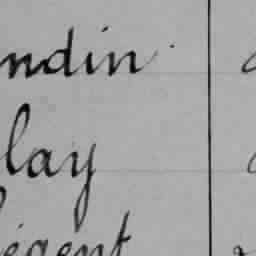 ndin
lay
égent